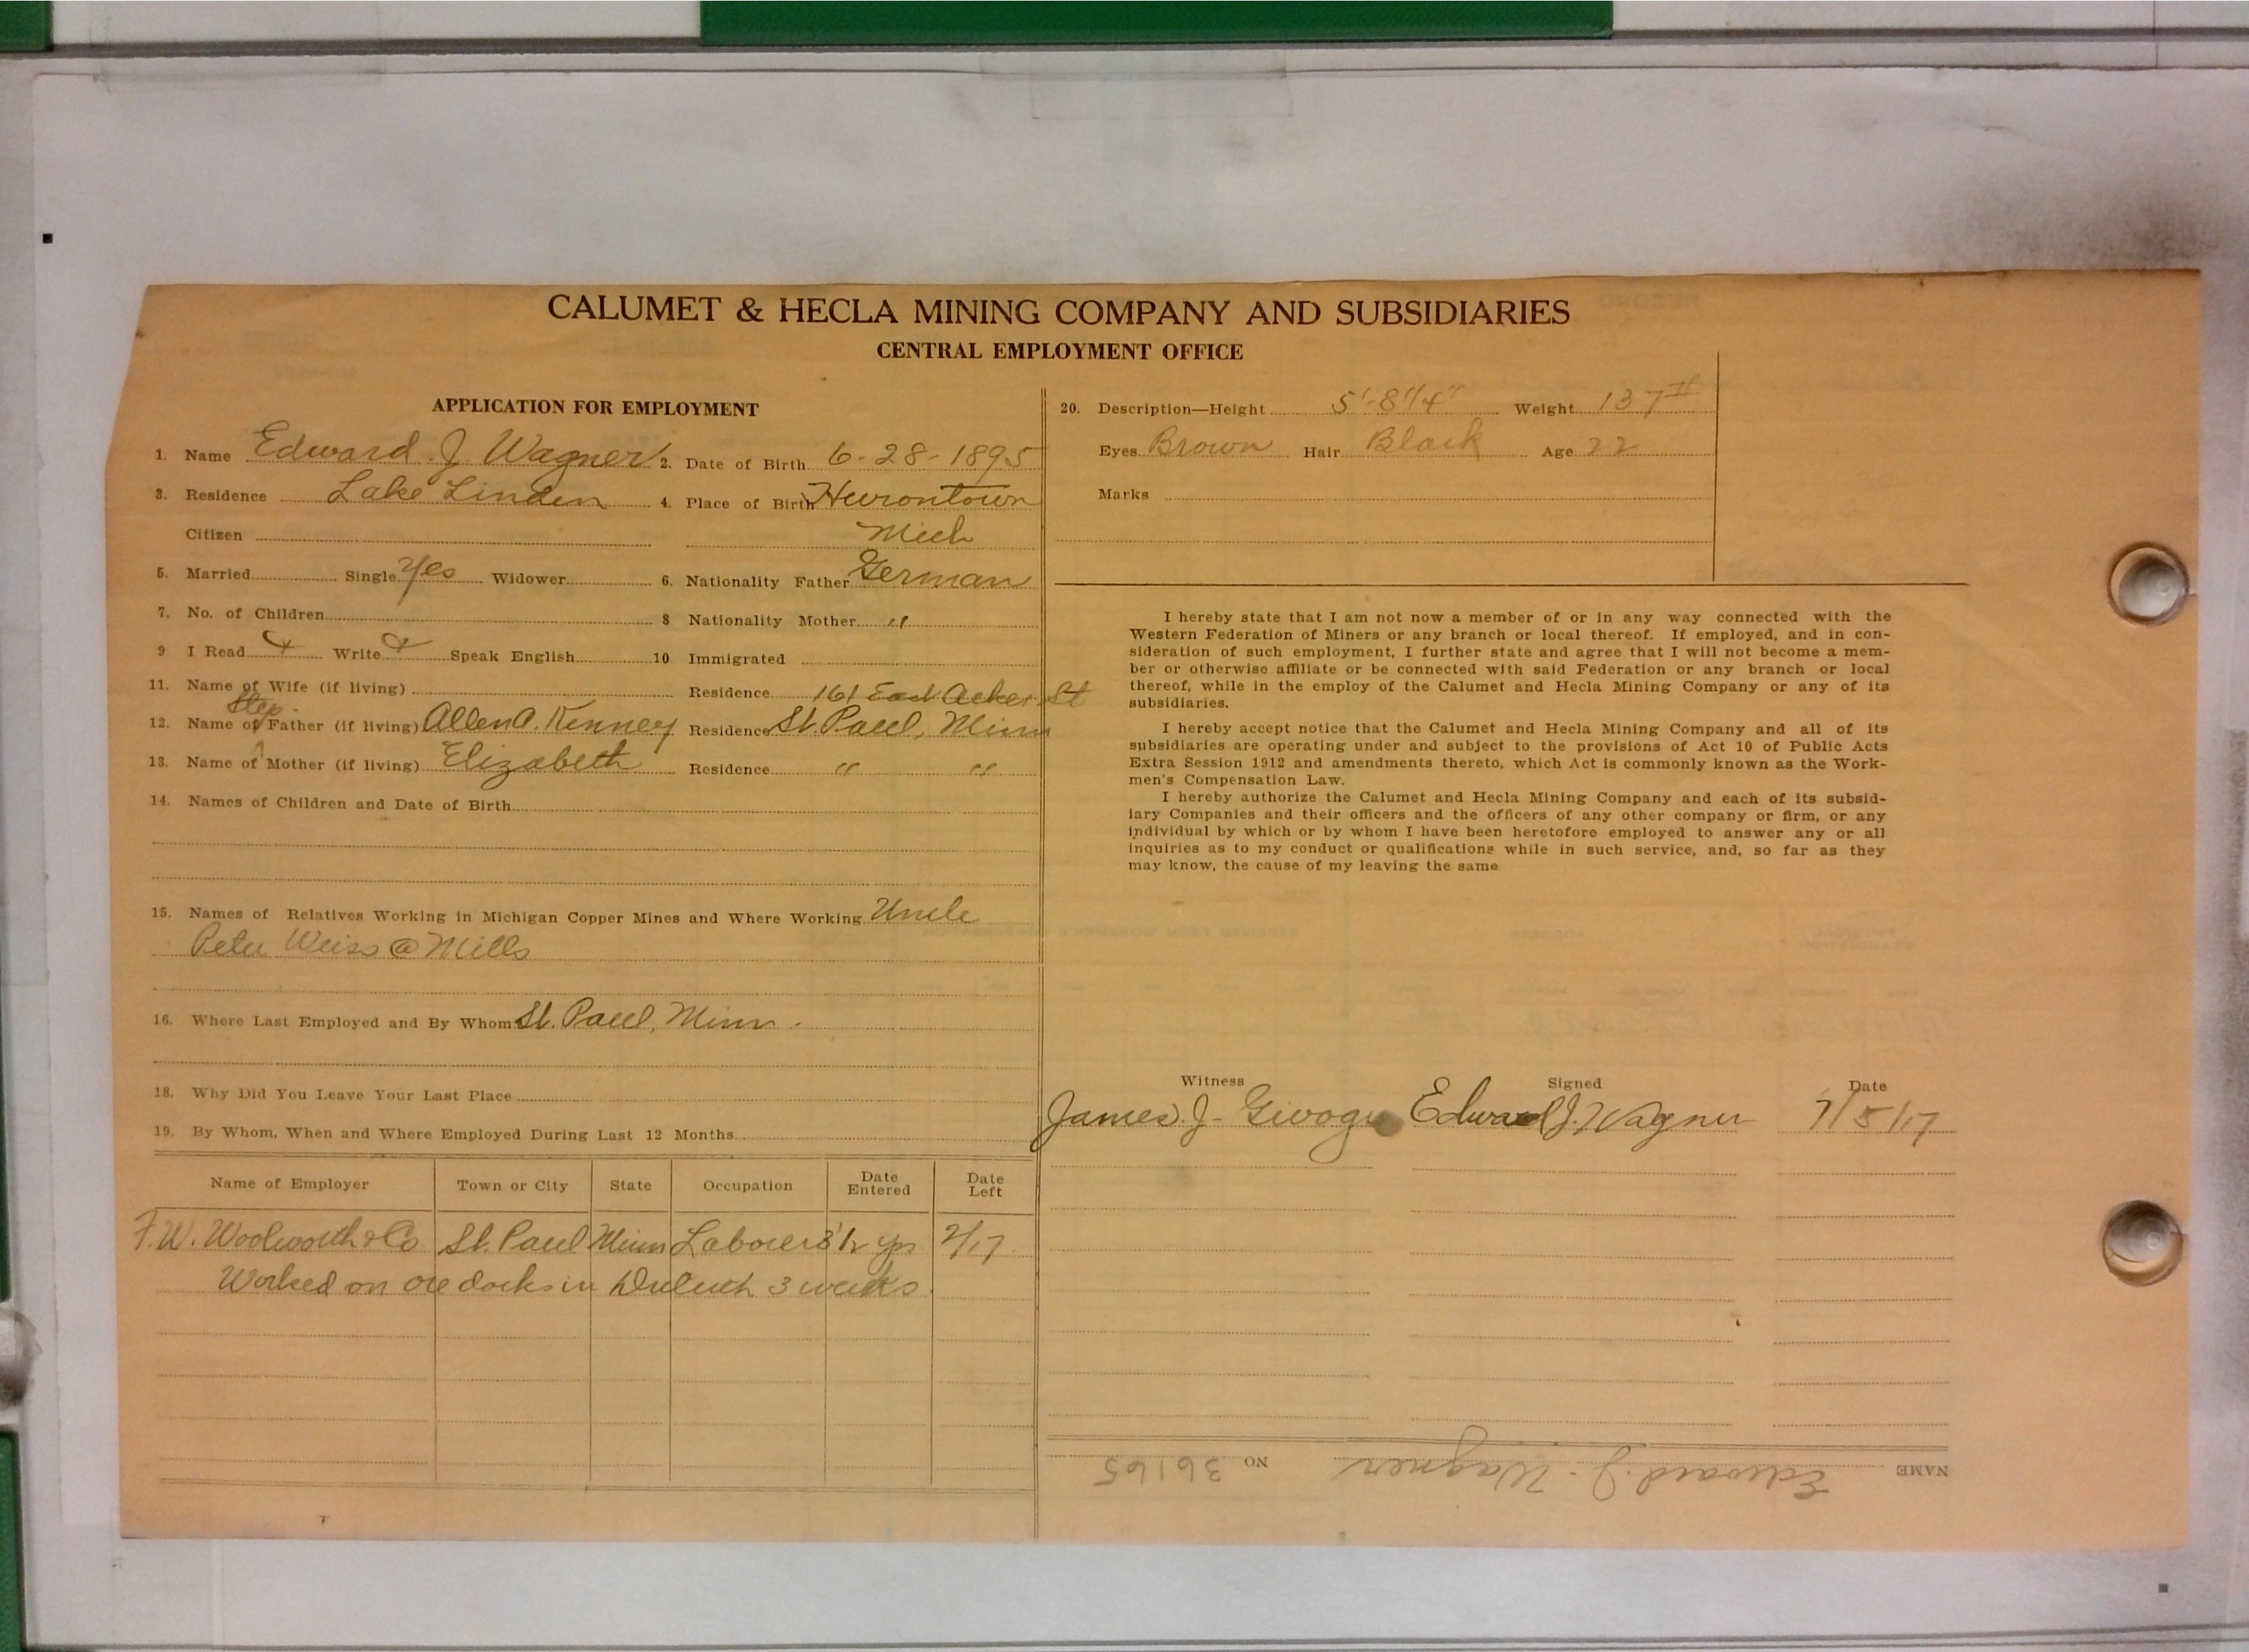 CALUMET & HECLA MINING COMPANY AND SUBSIDIARIES
CENTRAL EMPLOYMENT OFFICE
APPLICATION FOR EMPLOYMENT
1. Name Edward J. Wagner 2. Date of Birth 6-28-1895
3. Residence Lake Linden 4. Place of Birth Hurontown
Citizen Mich
5. Married Single Yes Widower 6. Nationality Father German
7. No. of Children 8 Nationality Mother "
9 I Read Write Speak English 10 Immigrated
11. Name of Wife (if living) Residence 161 East Acker St
Step-
12. Name of Father (if living) Allen A. Kenney Residence St. Paul, Minn
13. Name of Mother (if living) Elizabeth Residence " "
14. Names of Children and Date of Birth
15. Names of Relatives Working in Michigan Copper Mines and Where Working Uncle
Peter Weiss @ Mills
16. Where Last Employed and By Whom St. Paul, Minn.
18. Why Did You Leave Your Last Place
19. By Whom, When and Where Employed During Last 12 Months
Name of Employer Town or City State Occupation Date Entered Date Left
F. W. Woolworth & Co St. Paul Minn Laborer 3 1/2 yrs 2/17
Worked on ore docks in Duluth 3 weeks
20. Description—Height 5'-8 1/4" Weight 137#
Eyes Brown Hair Black Age 22
Marks
I hereby state that I am not now a member of or in any way connected with the
Western Federation of Miners or any branch or local thereof. If employed, and in con-
sideration of such employment, I further state and agree that I will not become a mem-
ber or otherwise affiliate or be connected with said Federation or any branch or local
thereof, while in the employ of the Calumet and Hecla Mining Company or any of its
subsidiaries.
I hereby accept notice that the Calumet and Hecla Mining Company and all of its
subsidiaries are operating under and subject to the provisions of Act 10 of Public Acts
Extra Session 1912 and amendments thereto, which Act is commonly known as the Work-
men's Compensation Law.
I hereby authorize the Calumet and Hecla Mining Company and each of its subsid-
iary Companies and their officers and the officers of any other company or firm, or any
individual by which or by whom I have been heretofore employed to answer any or all
inquiries as to my conduct or qualifications while in such service, and, so far as they
may know, the cause of my leaving the same
Witness Signed Date
James J. Edward J. Wagner 7/5/17
NAME Edward J. Wagner NO 36165